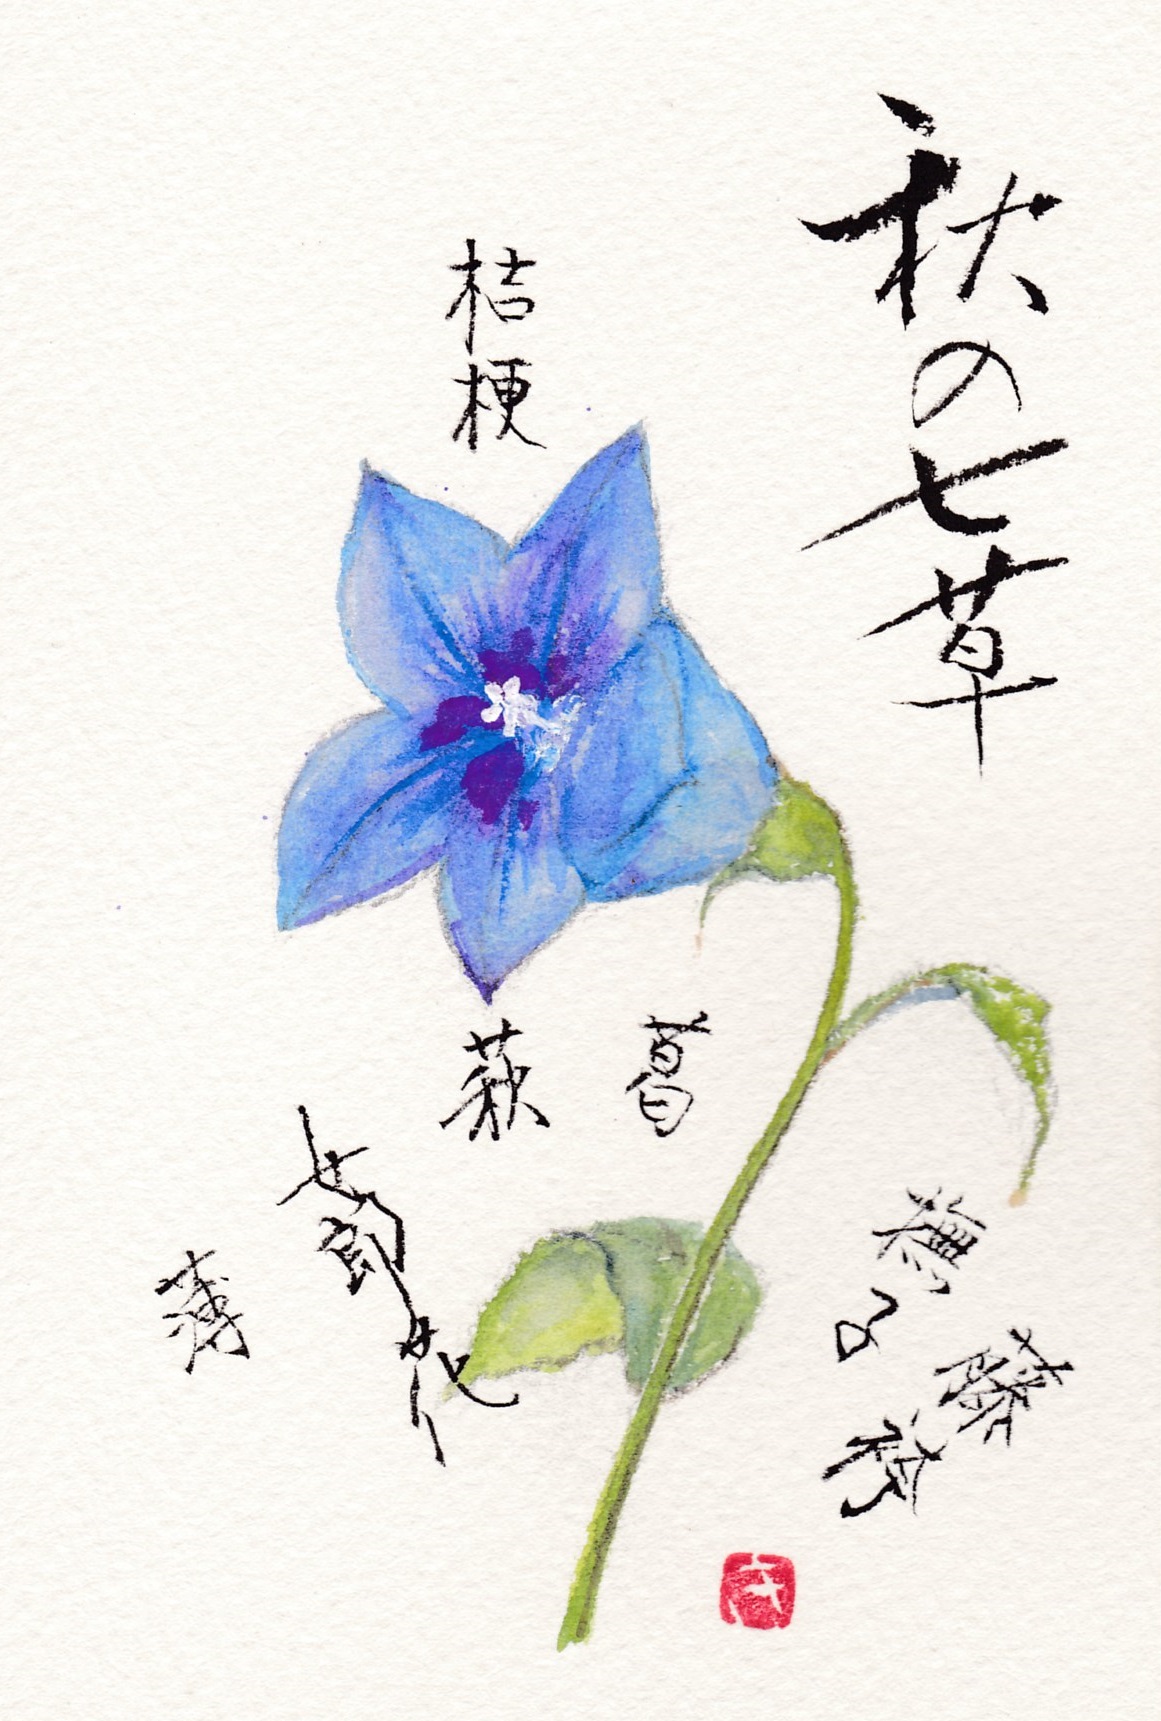 秋の七草
桔梗
葛
萩
撫子
藤袴
女郎花
薄